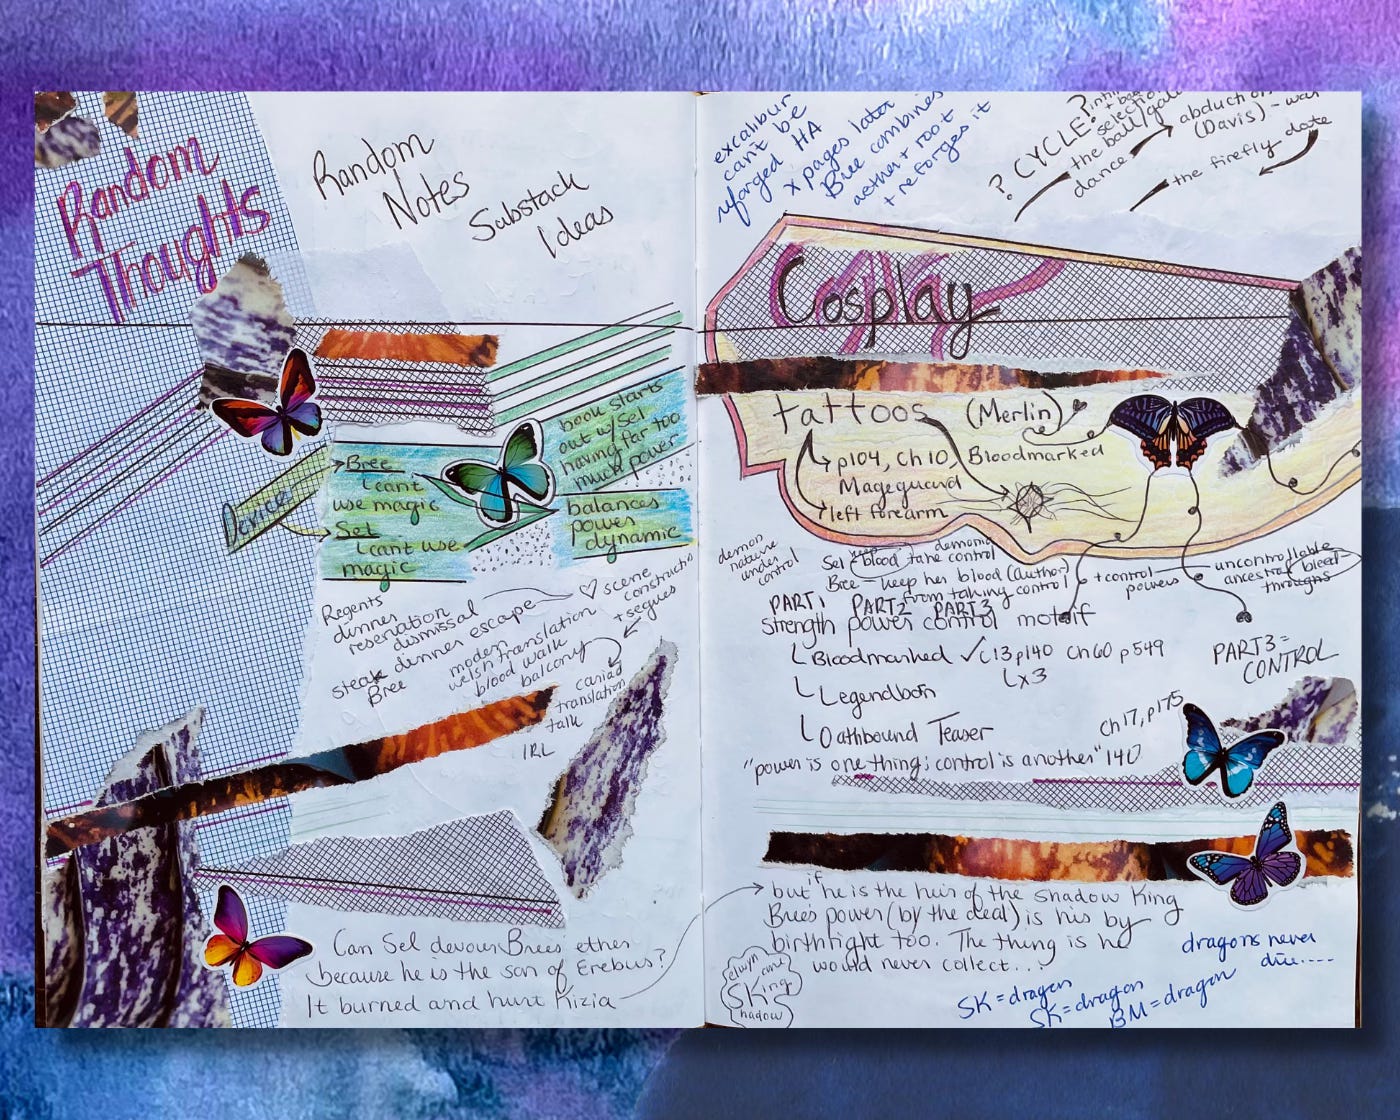 Random
Thoughts
Random
Notes
Substack
Ideas
Device
Bree
can't
use magic
Sel
can't use
magic
book starts
out w/ Sel
having far too
much power
balances
power
dynamic
Regents
dinner
reservation
dismissal
dinner escape
steak
Bree
modern
welsh translation
blood walk
balcony
♡ scene
construction
+ segues
cariad
translation
talk
IRL
Can Sel devour Bree's ether
because he is the son of Erebus?
It burned and hurt Kizia
excalibur
can't be
reforged HA
x pages later
Bree combines
aether + root
+ reforges it
? CYCLE?
selection
the ball/gala
dance
abduction
(Davis) - was
the firefly date
Cosplay
tattoos (Merlin)
p104, Ch 10, Bloodmarked
Mageguard
left forearm
demon
nature
under
control
Sel keep blood demonic
take control
Bree - keep her blood (Arthur)
from taking control
+ control
powers
uncontrollable
ancestral bleed
throughs
PART 1 PART 2 PART 3
strength power control motif
Bloodmarked ✓ C13 p140 Ch 60 p549
x3
Legendborn
Oathbound Teaser
PART 3 =
CONTROL
Ch 17, p175
"power is one thing; control is another" 140
but if he is the heir of the Shadow King
Bree's power (by the deal) is his by
birthright too. The thing is he
would never collect...
selwyn
and
King
SK
Shadow
dragons never
die....
SK = dragon
SK = dragon
BM = dragon